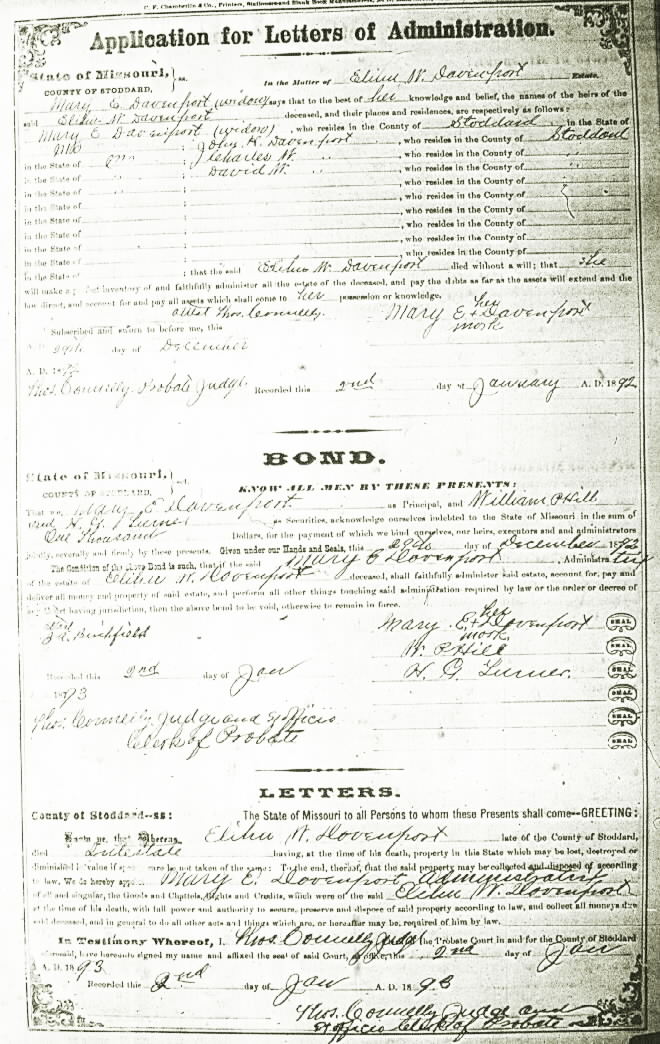 C. F. Chamberlin & Co., Printers, Stationers and Blank Book Manufacturers,
Application for Letters of Administration.
State of Missouri,
COUNTY OF STODDARD, } ss. In the Matter of Elihu W. Davenport Estate.
Mary E Davenport (widow) says that to the best of her knowledge and belief, the names of the heirs of the
said Elihu W Davenport deceased, and their places and residences, are respectively as follows:
Mary E Davenport (widow), who resides in the County of Stoddard in the State of
Mo ; John K. Davenport, who resides in the County of Stoddard
in the State of ; Charles W. " , who resides in the County of "
in the State of " ; David W. " , who resides in the County of "
in the State of ; , who resides in the County of
in the State of ; , who resides in the County of
in the State of ; , who resides in the County of
in the State of ; , who resides in the County of
in the State of ; , who resides in the County of
in the State of ; , who resides in the County of
in the State of ; that the said Elihu W. Davenport died without a will; that she
will make a inventory of and faithfully administer all the estate of the deceased, and pay the debts as far as the assets will extend and the
law direct, and account for and pay all assets which shall come to her possession or knowledge.
attest Thos. Connelly. Mary E + Davenport
her
mark
Subscribed and sworn to before me, this
29th day of December
A. D. 189
Thos. Connelly. Probate Judge. Recorded this 2nd day of January A. D. 1892
BOND.
State of Missouri,
COUNTY OF STODDARD, } ss. KNOW ALL MEN BY THESE PRESENTS:
That we, Mary E Davenport as Principal, and William P Hill
and H. G. Turner as Securities, acknowledge ourselves indebted to the State of Missouri in the sum of
One Thousand Dollars, for the payment of which we bind ourselves, our heirs, executors and administrators
jointly, severally and firmly by these presents. Given under our Hands and Seals, this 29th day of December 1892
The Condition of the above Bond is such, that if the said Mary E Davenport, Administratrix
of the estate of Elihu W. Davenport deceased, shall faithfully administer said estate, account for, pay and
deliver all money and property of said estate, and perform all other things touching said administration required by law or the order or decree of
any Court having jurisdiction, then the above bond to be void, otherwise to remain in force.
Mary E + Davenport SEAL
her
mark
Birchfield
W. P Hill SEAL
H. G Turner. SEAL
Recorded this 2nd day of Jan
1893 SEAL
Thos. Connelly Judge and Ex officio SEAL
Clerk of Probate SEAL
LETTERS.
County of Stoddard--ss: The State of Missouri to all Persons to whom these Presents shall come--GREETING:
Know ye, that Whereas, Elihu W. Davenport late of the County of Stoddard,
died Intestate having, at the time of his death, property in this State which may be lost, destroyed or
diminished in value if care be not taken of the same: To the end, therefore, that the said property may be collected and disposed of according
to law, We do hereby appoint Mary E. Davenport Administratrix
of all and singular, the Goods and Chattels, Rights and Credits, which were of the said Elihu W. Davenport
at the time of his death, with full power and authority to secure, preserve and dispose of said property according to law, and collect all moneys due
said deceased, and in general to do all other acts and things which are, or hereafter may be, required of him by law.
In Testimony Whereof, I, Thos. Connelly Judge of the Probate Court in and for the County of Stoddard
aforesaid, have hereunto signed my name and affixed the seal of said Court, at office, this 2nd day of Jan
A. D. 1893
Recorded this 2nd day of Jan A. D. 1893
Thos. Connelly Judge and
Ex officio Clerk of Probate